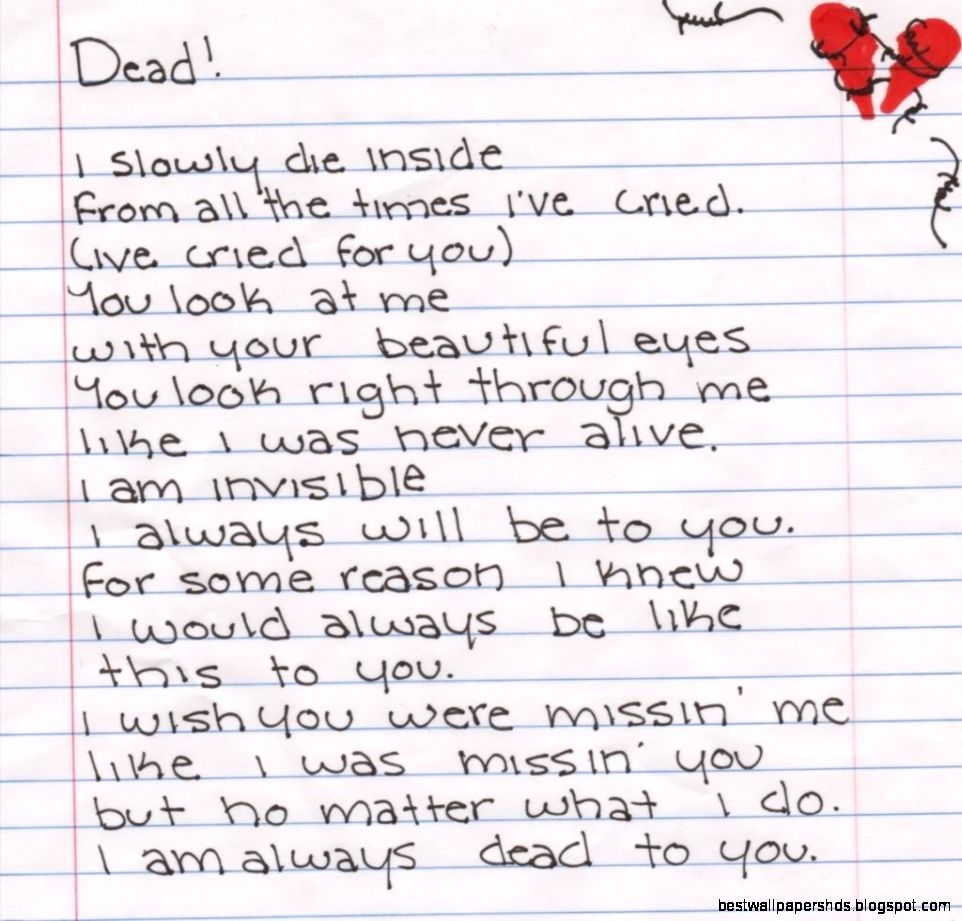 Dead!
I slowly die inside
From all the times I've cried.
(ive cried for you)
You look at me
with your beautiful eyes
You look right through me
like I was never alive.
I am invisible
I always will be to you.
For some reason I knew
I would always be like
this to you.
I wish you were missin' me
like I was missin' you
but no matter what I do.
I am always dead to you.
bestwallpapershds.blogspot.com